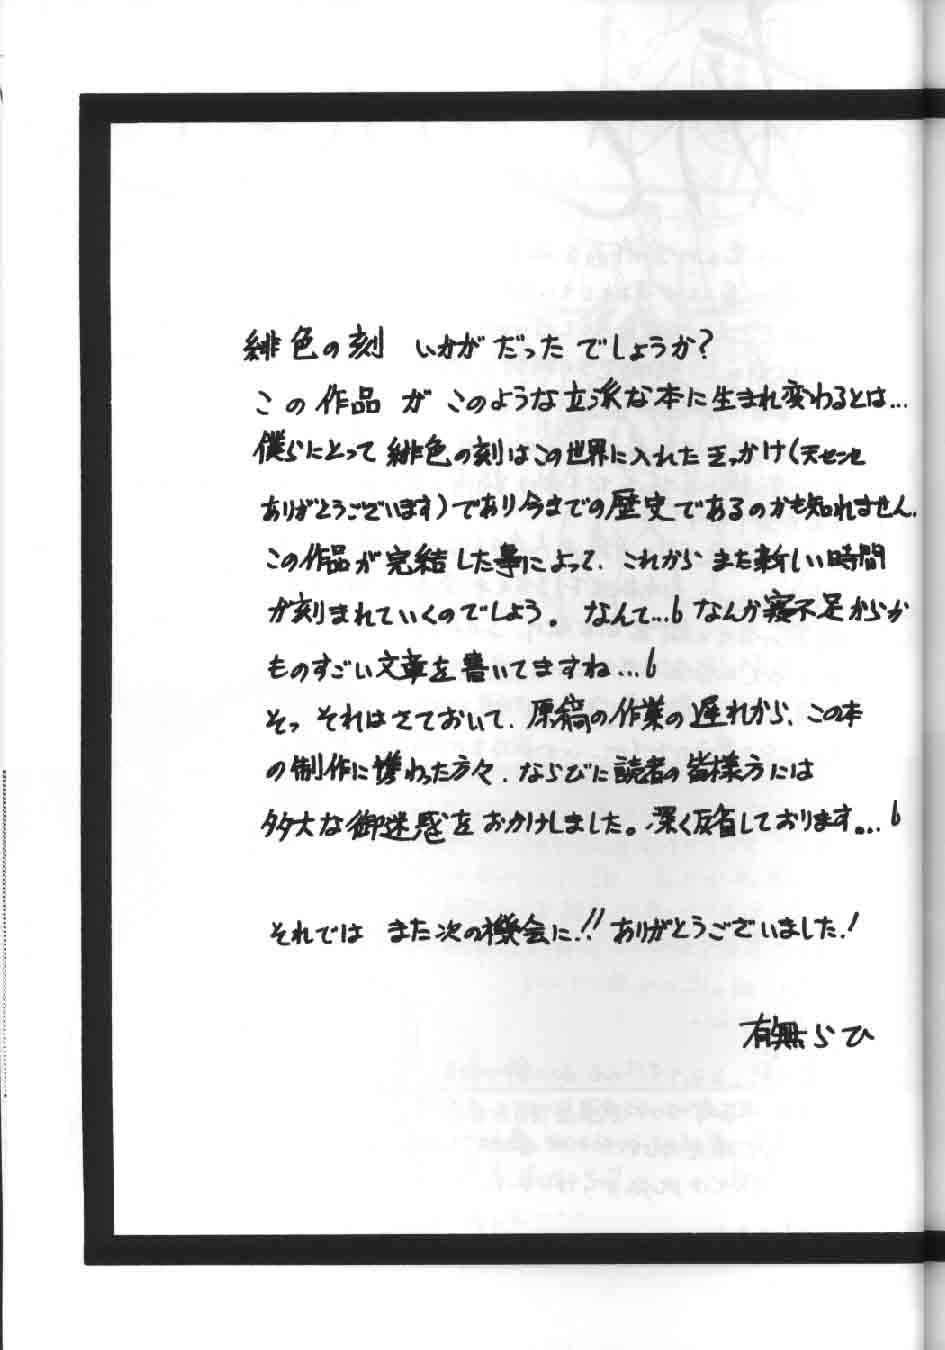 緋色の刻 いかがだったでしょうか?
この作品がこのような立派な本に生まれ変わるとは...
僕らにとって緋色の刻はこの世界に入れたきっかけ(天センセ
ありがとうございます)であり今までの歴史であるのかも知れません.
この作品が完結した事によって、これからまた新しい時間
が刻まれていくのでしょう。なんて...6 なんか寝不足からか
ものすごい文章を書いてますね...6
そっ それはさておいて、原稿の作業の遅れから、この本
の制作に携わった方々、ならびに読者の皆様方には
多大な御迷惑をおかけしました。深く反省しております。..6
それでは また次の機会に!! ありがとうございました!
有無らひ